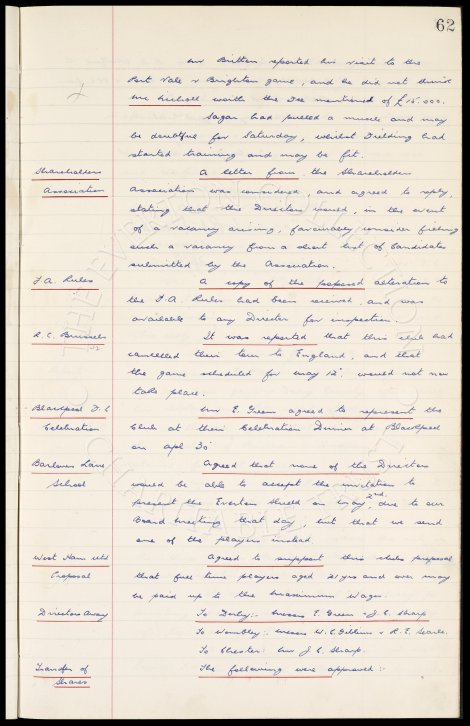 62
Mr Britten reported his visit to the
Port Vale v Brighton game, and he did not think
worth the Fee mentioned of £15.000.
Sagar had pulled a muscle and may
be doubtful for Saturday, whilst Fielding had
started training and may be fit.
Shareholders A letter from the Shareholders
Association Association was considered, and agreed to reply,
stating that the Directors would, in the event
of a vacancy arising, favourably consider filling
such a vacancy from a short list of Candidates
submitted by the Association.
F.A. Rules A copy of the proposed alteration to
the F.A. Rules had been received, and was
available to any Director for inspection.
R.C. Brussels It was reported that this club had
cancelled their tour to England, and that
the game scheduled for May 12 would not now
take place.
Blackpool F.C Mr E. Green agreed to represent the
Celebration Club at their Celebration Dinner at Blackpool
on Apl 30
Barlows Lane Agreed that none of the Directors
School would be able to accept the invitation to
present the Everton Shield on May 2nd, due to our
Board Meeting that day, but that we send
one of the players instead.
West Ham Utd Agreed to support this clubs proposal
Proposal that full time players aged 21 yrs and over may
be paid up to the Maximum Wages.
Directors Away To Derby:- Messrs E. Green & J.C. Sharp
To Wembley: Messrs W.C. Gibbins & R.E. Searle.
To Chester: Mr J.C. Sharp.
Transfer of The following were approved:-
Shares